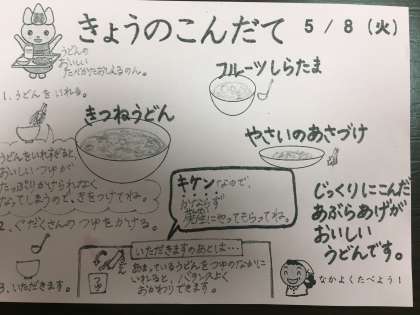 きょうのこんだて 5/8(火)
うどんの
おいしい
たべかたおしえるのん。
フルーツしらたま
1.うどんをいれる。
きつねうどん
やさいのあさづけ
うどんをいれすぎると、
おいしいつゆが
たっぷりかけられなく
なってしまうので、きをつけてね。
キケンなので、
かならず
先生にやってもらってね。
じっくりにこんだ
あぶらあげが
おいしい
うどんです。
2.ぐだくさんのつゆをかける。
いただきますのあとは…
あまっているうどんをつゆのなかに
いれると、バランスよく
おかわりできます。
3.いただきます。
なかよくたべよう!